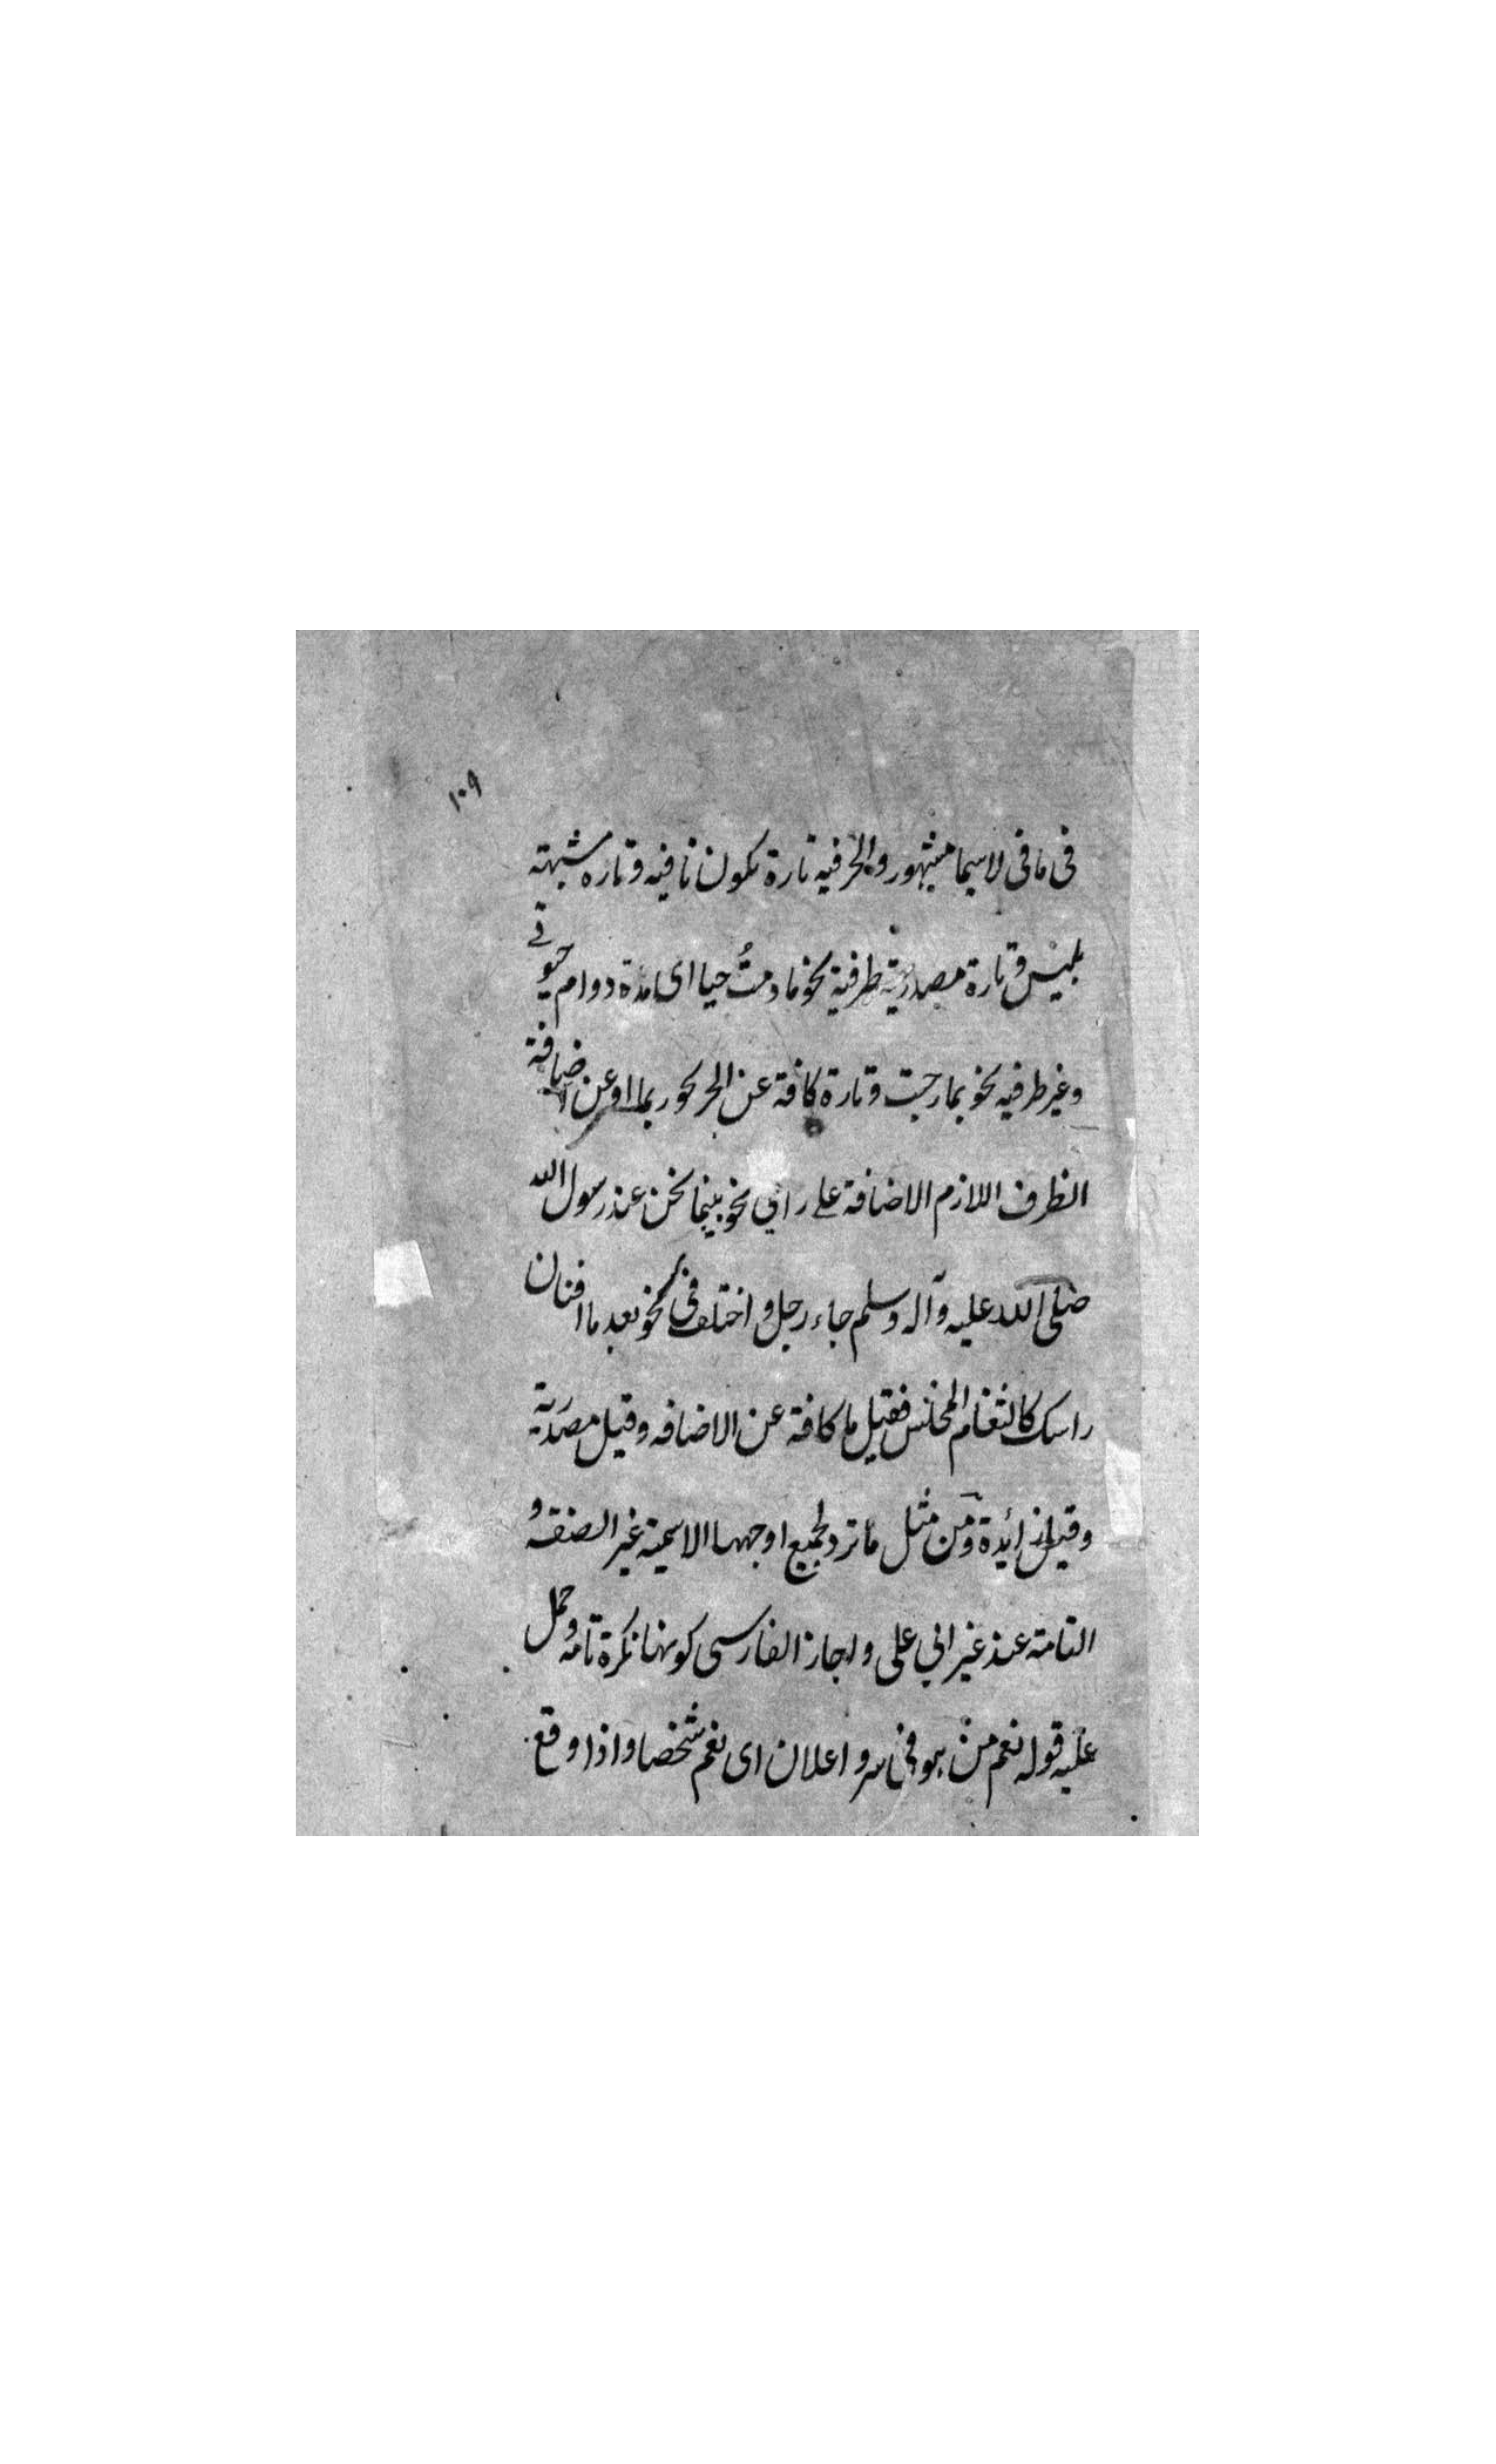 ١٠٩
فى ما فى لاسيما مشهور والحرفيه تارة تكون نافيه وتاره مشبهته
بليس وتارة مصدرية ظرفية نحو ما دمتُ حيا اى مدة دوام حيوتى
وغير ظرفيه نحو بما رحبت وتارة كافة عن الجر نحو ربما او عن اضافة
الظرف اللازم الاضافة على راى نحو بينما نحن عند رسول الله
صلى الله عليه وآله وسلم جاء رجل واختلف فى نحو بعد ما افنان
راسك كالثغام المخلس فقيل ما كافة عن الاضافه وقيل مصدرية
وقيل زائدة ومن مثل ما ترد لجميع اوجهها الاسمية غير الصفة و
التامة عند غير ابي على واجاز الفارسى كونها نكرة تامه وحمل
عليه قوله نعم من هو فى سر واعلان اى نعم شخصا واذا وقع